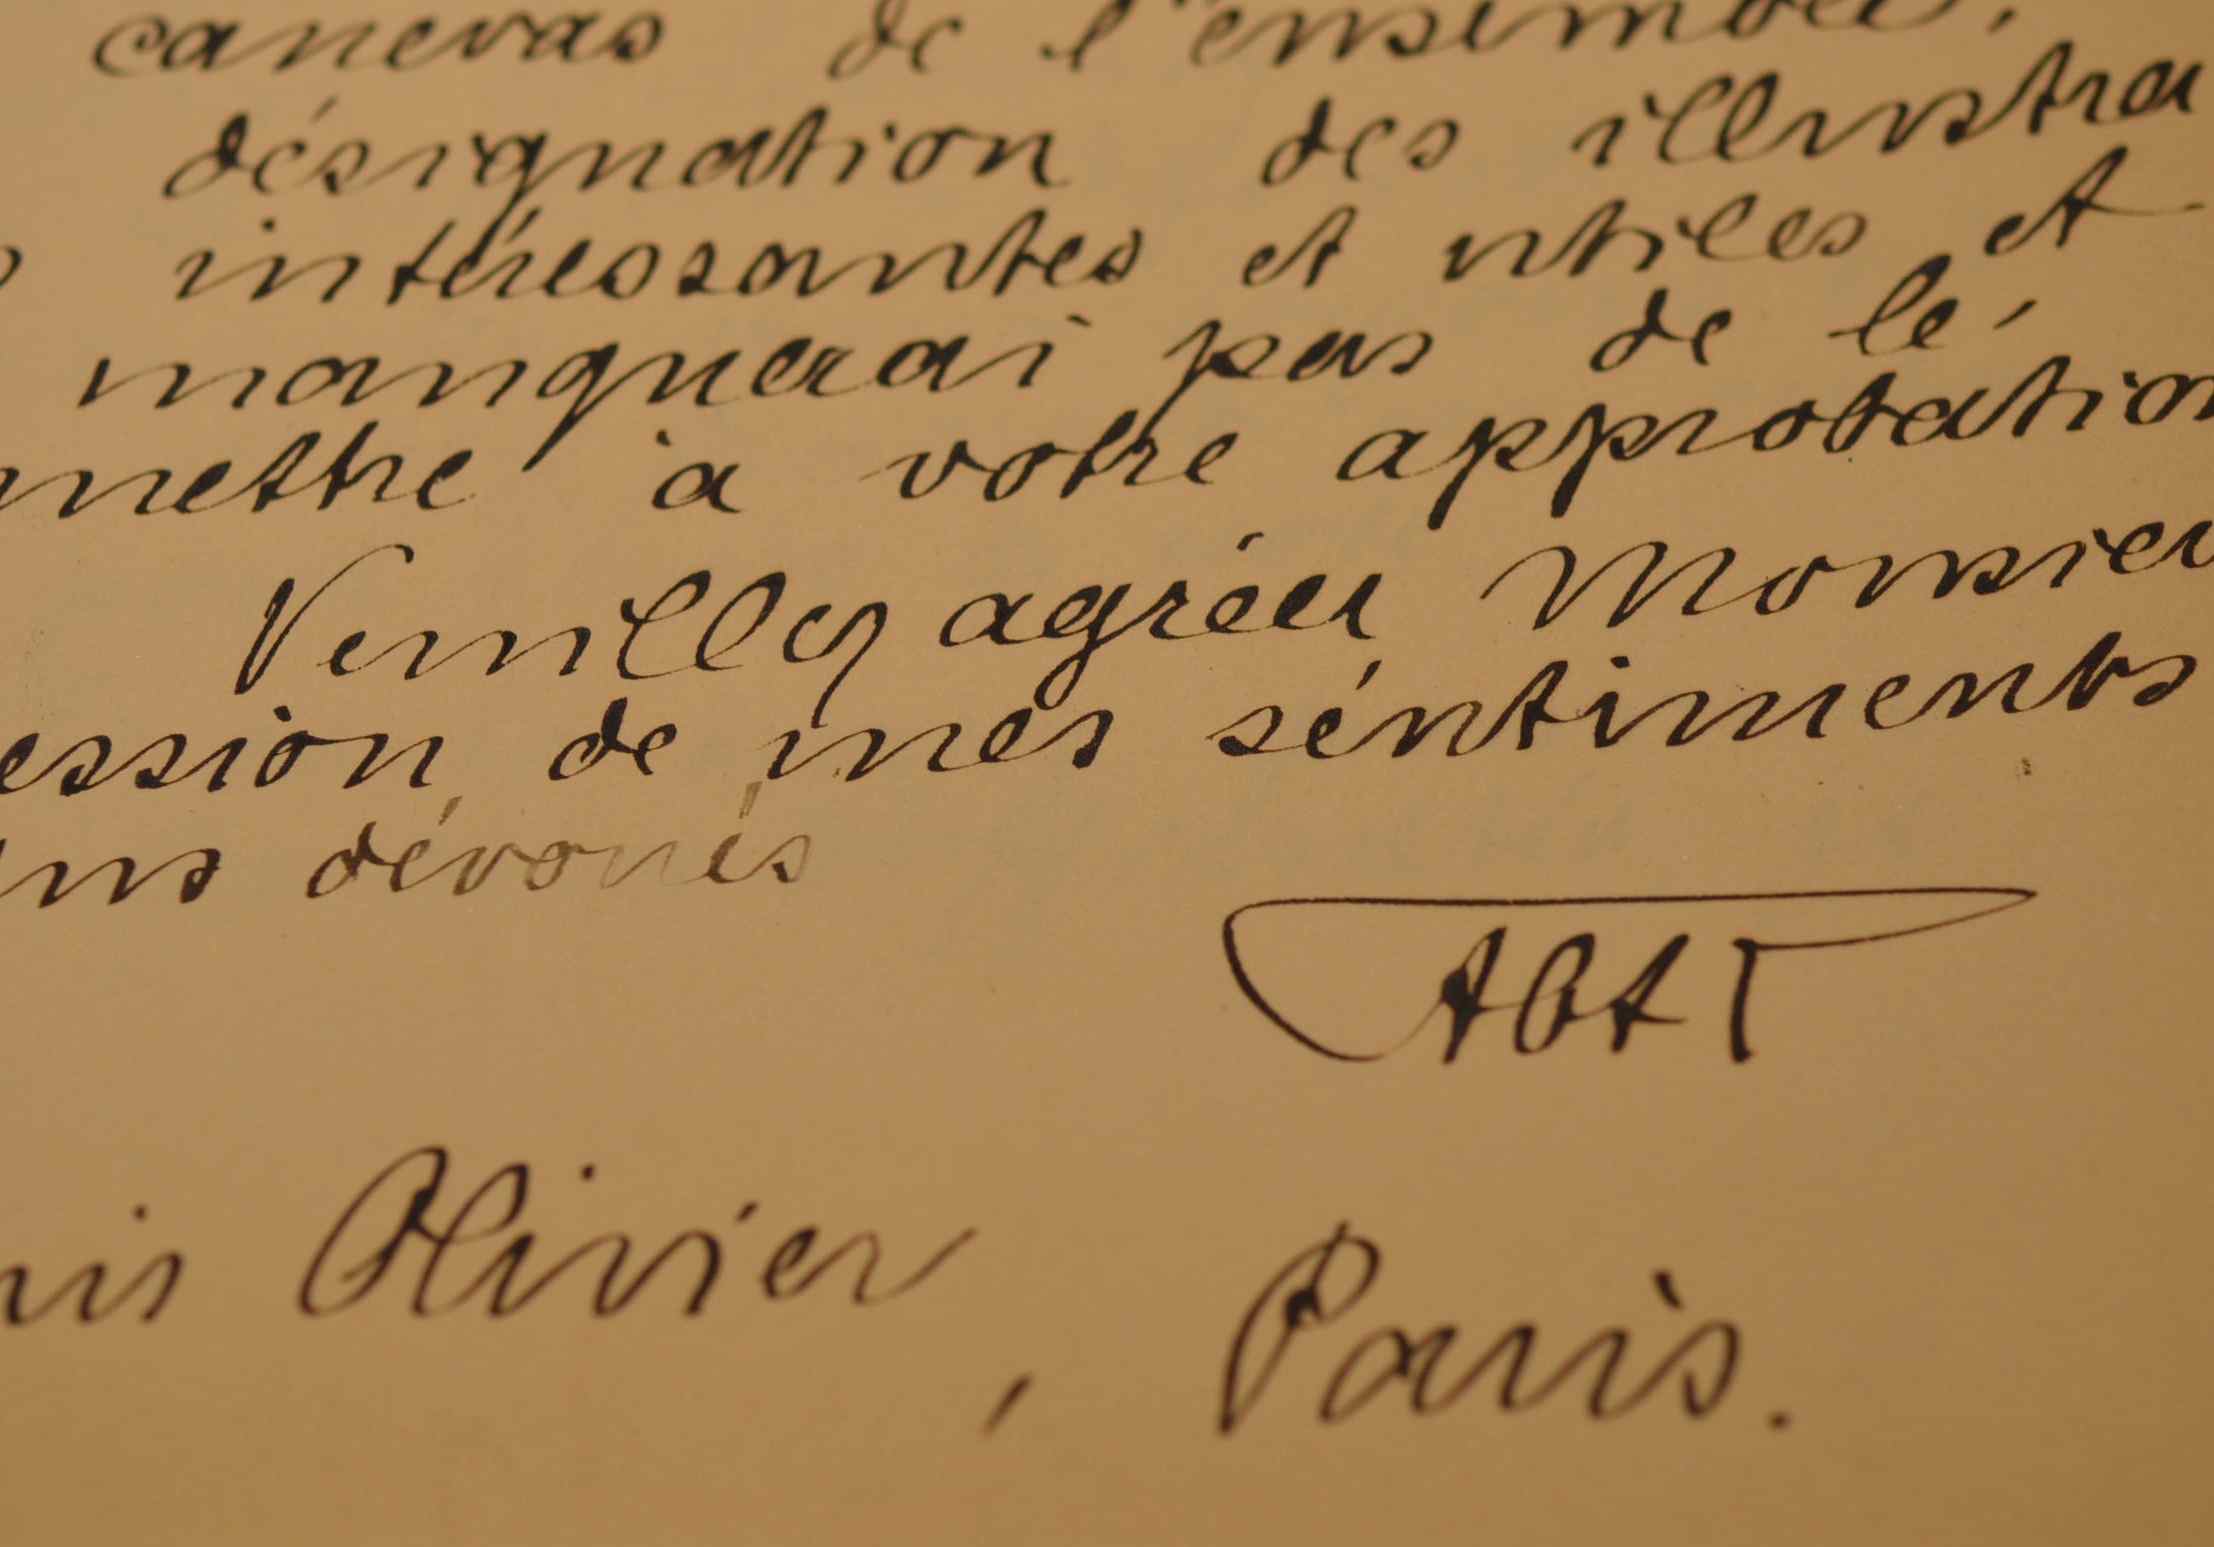 canevas de l'ensemble,
désignation des illustra
intéressantes et utiles et
manquerai pas de le
mettre à votre approbation
Veuillez agréer Monsieu
ession de mes séntiments
dévoués
Abt
Olivier, Paris.